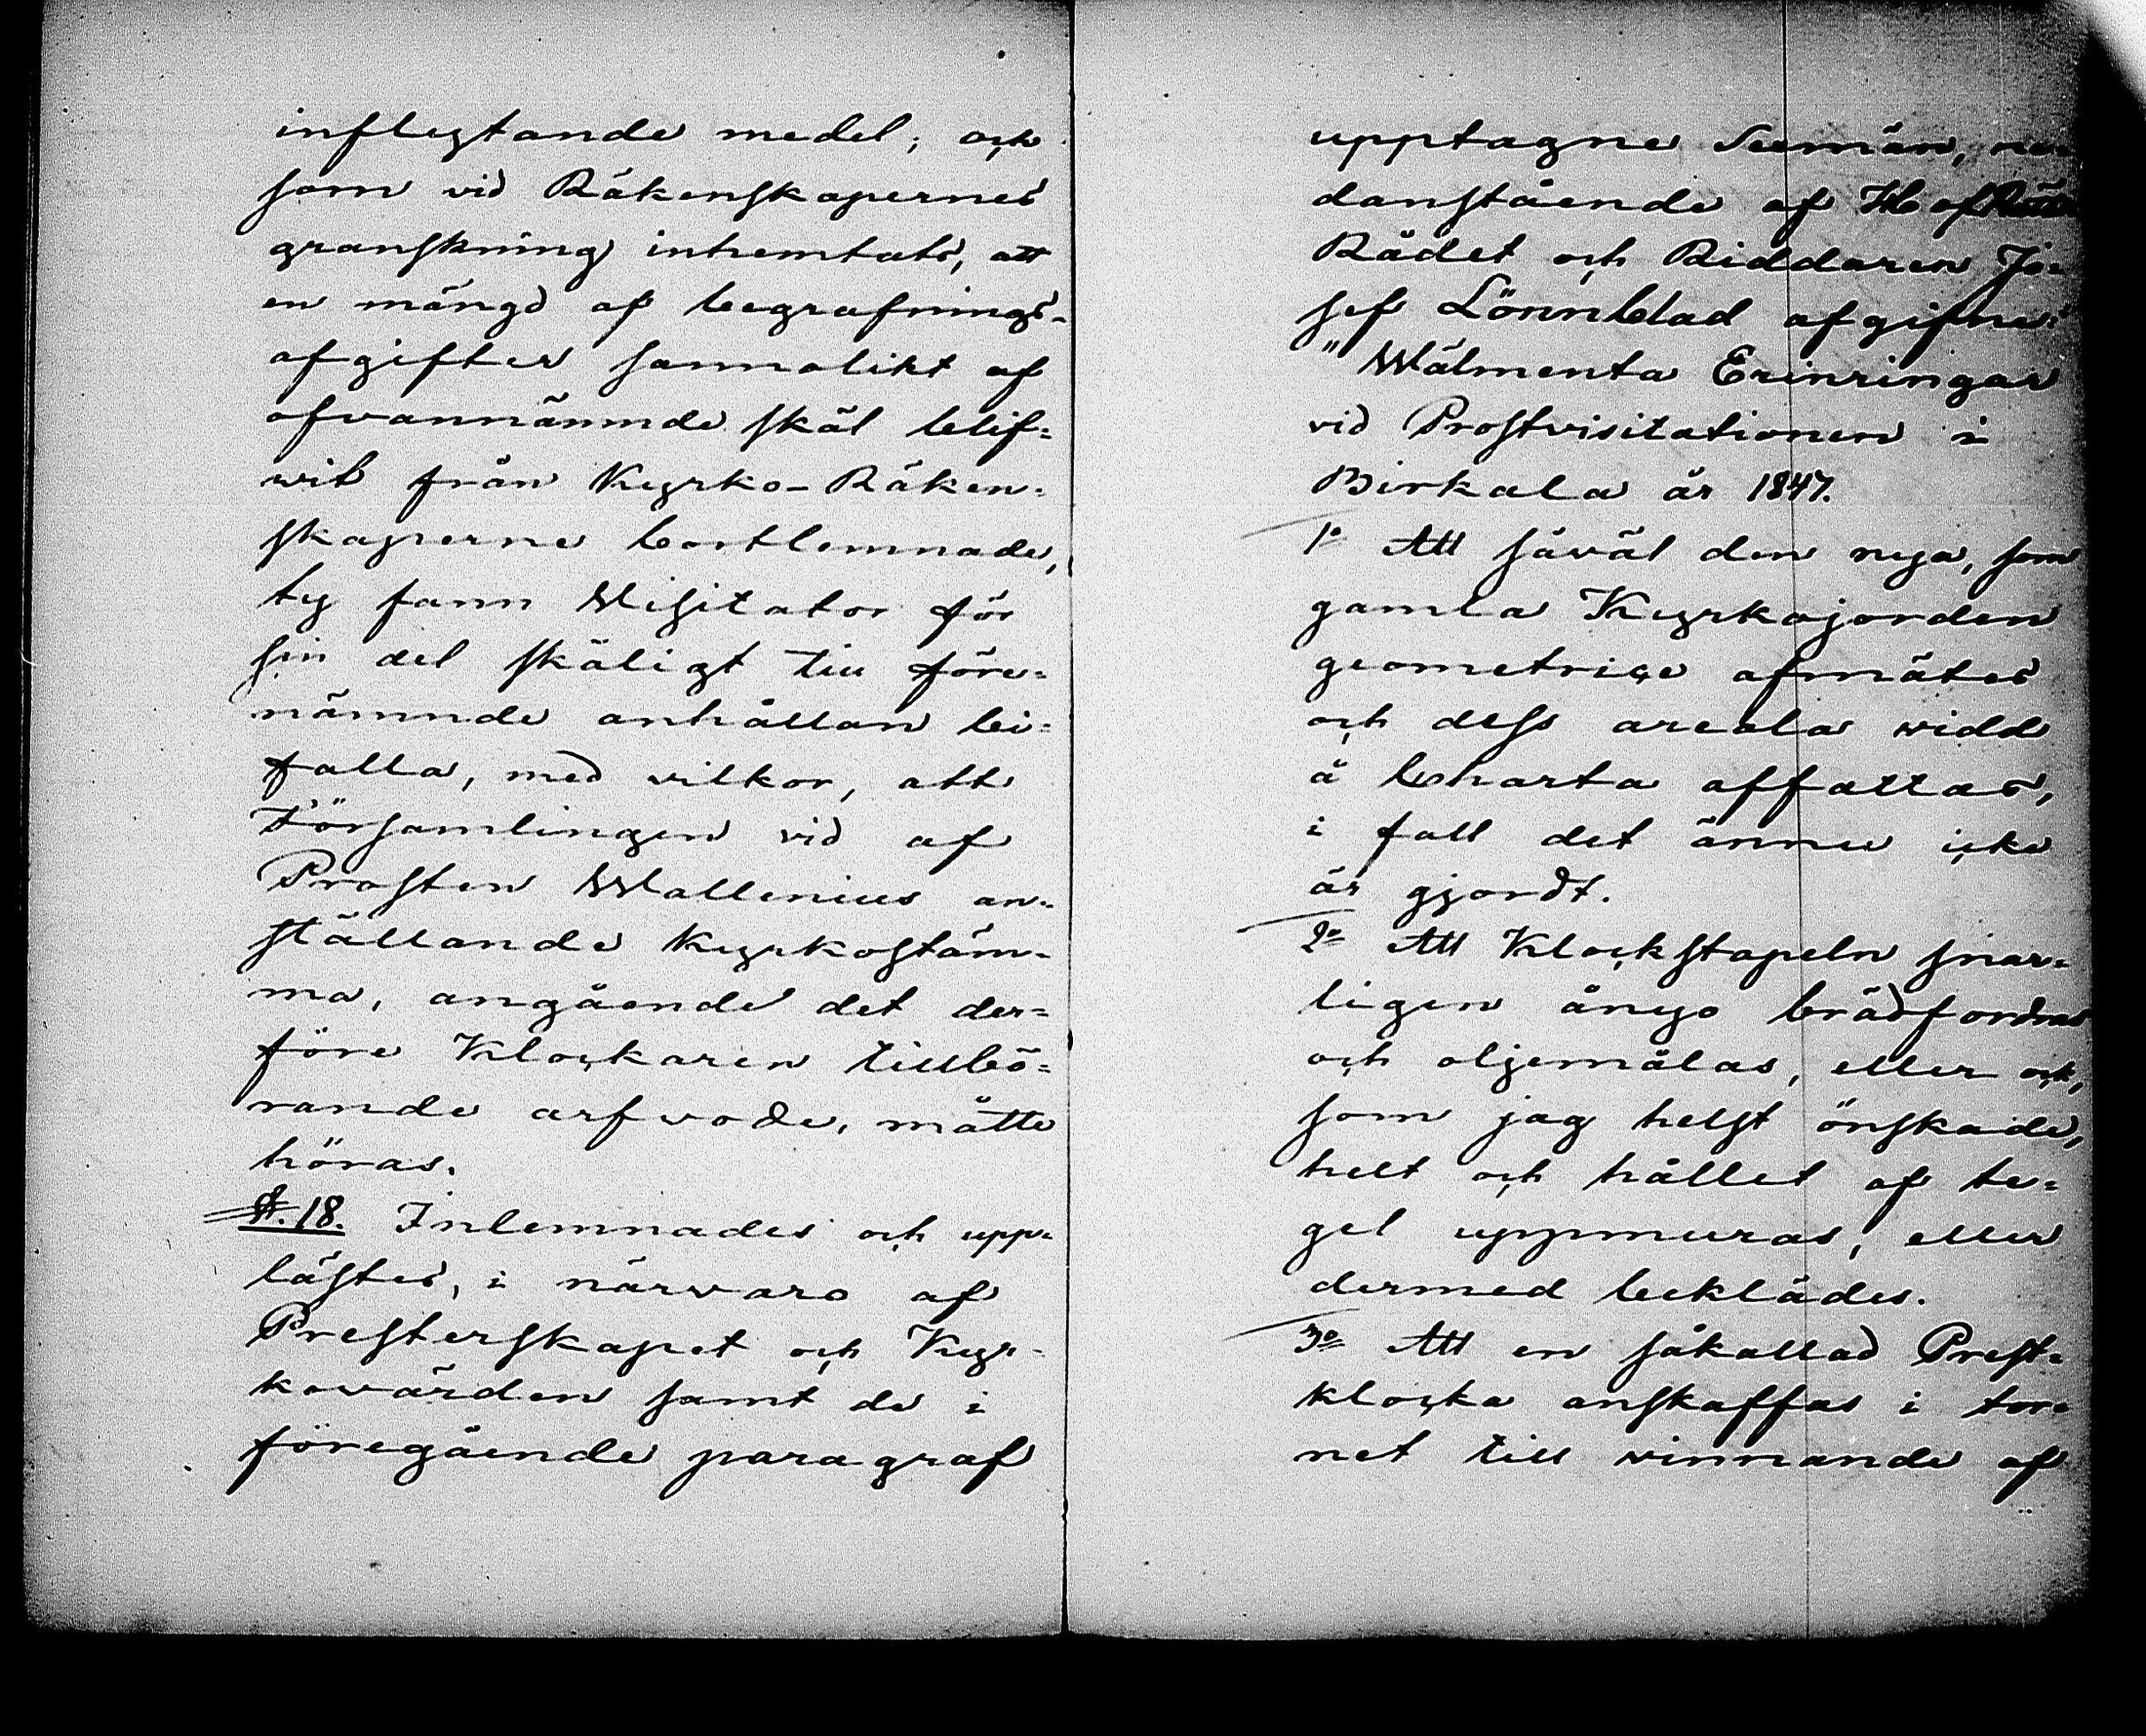 inflygtande medel; och
som vid Räkenskapernes
granskning inhemtats, att
en mängd af begrafnings-
afgifter sannolikt af
ofvannämnde skäl blif-
wit från Kyrko-Räken-
skaperne bortlemnade,
ty fann Visitator för
sin del skäligt till före-
nämnde anhållan bi-
falla, med vilkor, att
Församlingen vid af
Prosten Wallenius an-
ställande kyrkostäm-
ma, angående det der-
före Klockaren tillbö-
rande arfvode, måtte
höras.
§. 18. Inlemnades och upp-
lästes, i närwaro af
Presterskapet och Kyr-
kovärden samt de i
föregående paragraf
upptagne Sexmän, ne-
danstående af Hof
Rådet och Riddaren Jo-
sef Lönnblad afgifne:
"Wälmenta Erinringar
vid Prostvisitationen i
Birkala år 1847.
1o Att såväl den nya, som
gamla Kyrkojorden
geometrice afmätes
och dess areala widd
å Charta affattas,
i fall det ännu icke
är gjordt.
2o Att Klockstapeln snar-
ligen ånyo brädfordras
och oljemålas, eller och,
som jag helst önskade,
helt och hållet af te-
gel uppmuras, eller
dermed beklädes.
3o Att en såkallad Prest-
klocka anskaffas i tor-
net till vinnande af